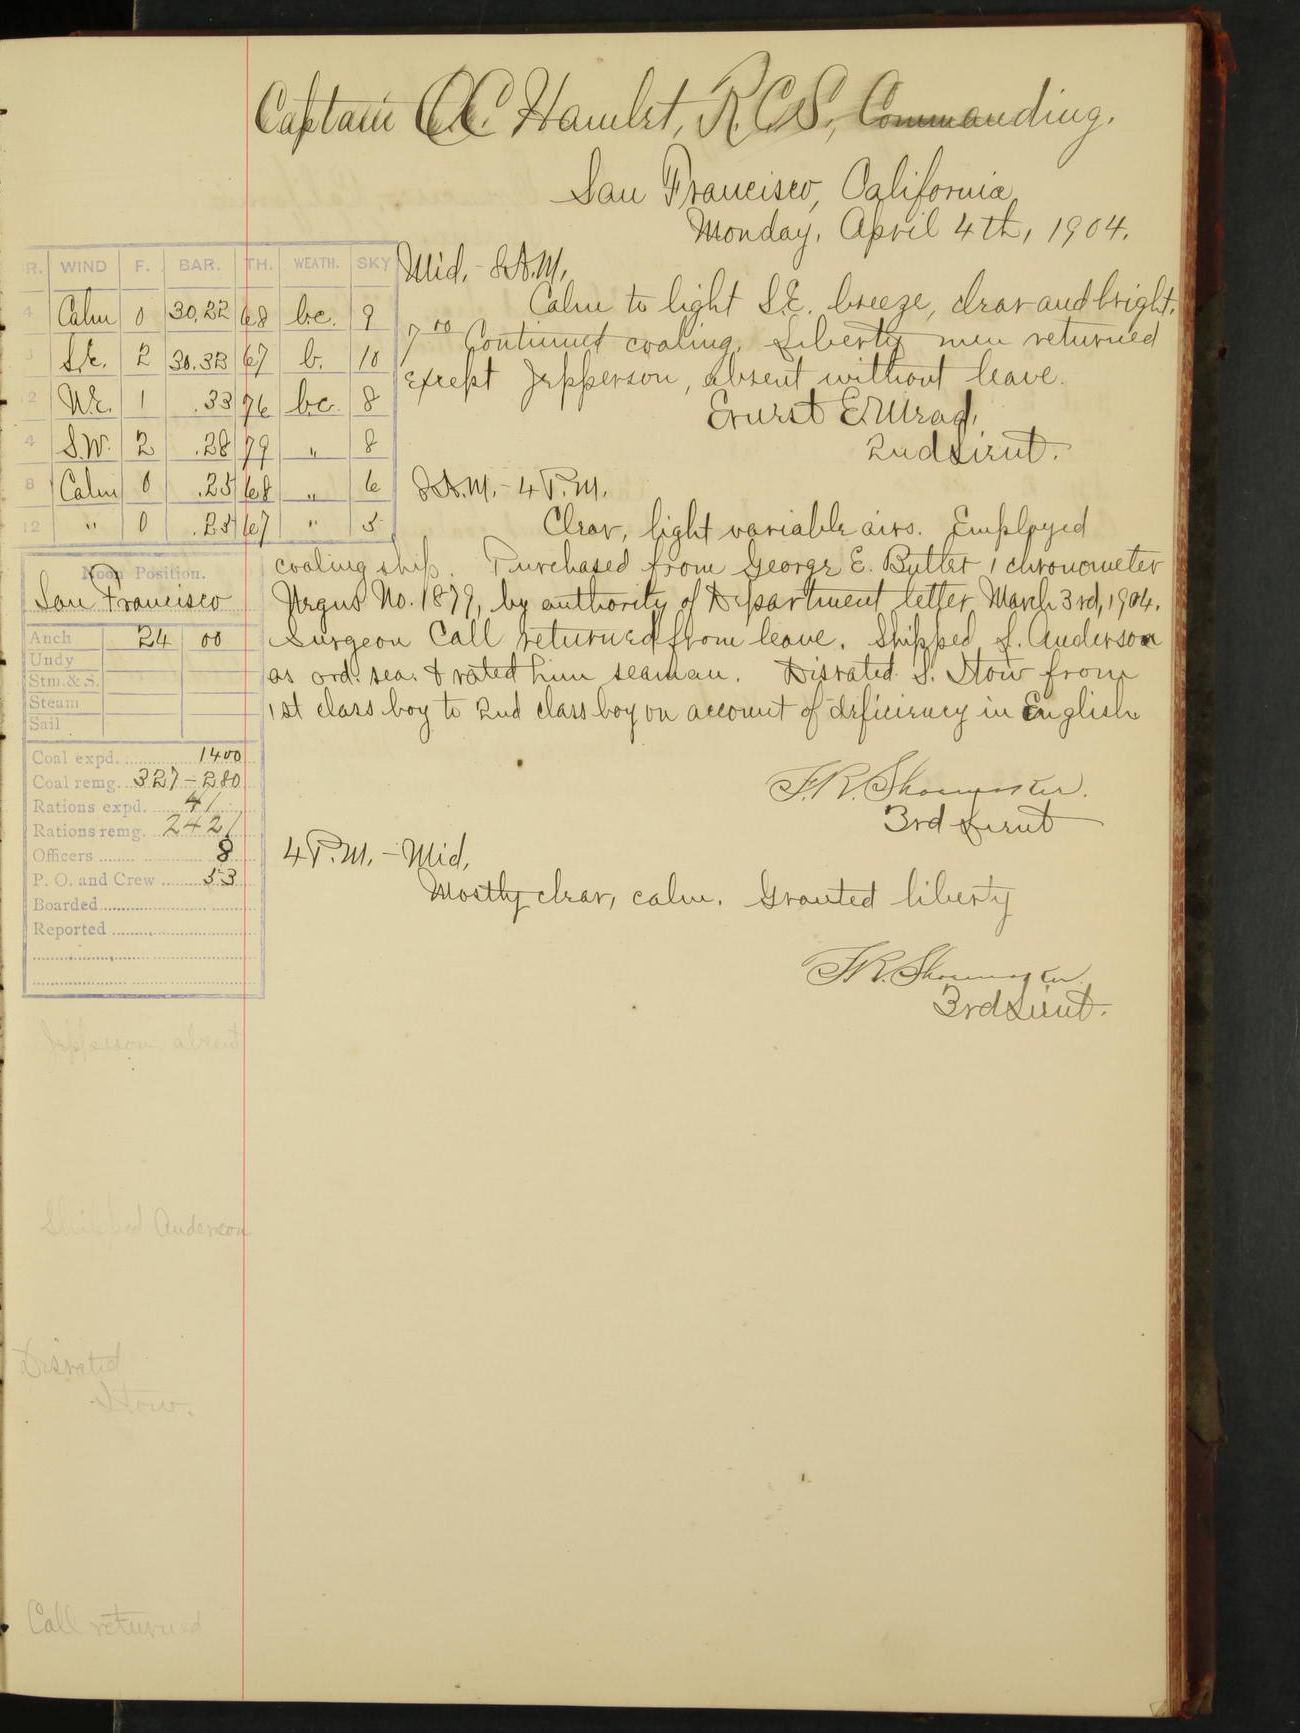 Captain O.C. Hamlet, R.C.S., Commanding.
San Francisco, California
Monday, April 4th, 1904.
R. WIND F. BAR. TH. WEATH. SKY
4 Calm 0 30.22 68 bc. 9
S.E. 2 30.33 67 b. 10
2 N.E. 1 .33 76 bc. 8
4 S.W. 2 .28 79 " 8
8 Calm 0 .25 68 " 6
12 " 0 .25 67 " 5
Noon Position.
San Francisco
Anch 24 00
Undy
Stm. & S.
Steam
Sail
Coal expd. 1400
Coal remg. 327-280
Rations expd. 41
Rations remg. 2421
Officers 8
P. O. and Crew 53
Boarded
Reported
Mid. - 8 A.M.
Calm to light S.E. breeze, clear and bright.
7 00 Continued coaling. Liberty men returned
except Jepperson, absent without leave.
Ernst E. Mead,
2nd Lieut.
8 A.M. - 4 P.M.
Clear, light variable airs. Employed
coaling ship. Purchased from George E. Butler 1 chronometer
Negus No. 1879, by authority of Department letter March 3rd, 1904.
Surgeon Call returned from leave. Shipped S. Anderson
as ord. sea. & rated him seaman. Disrated S. Itow from
1st class boy to 2nd class boy on account of deficiency in English
F.R. Shoemaker.
3rd Lieut
4 P.M. - Mid.
Mostly clear, calm. Granted liberty
F.R. Shoemaker
3rd Lieut.
Jepperson absent
Shipped Anderson
Disrated
Itow.
Call returned